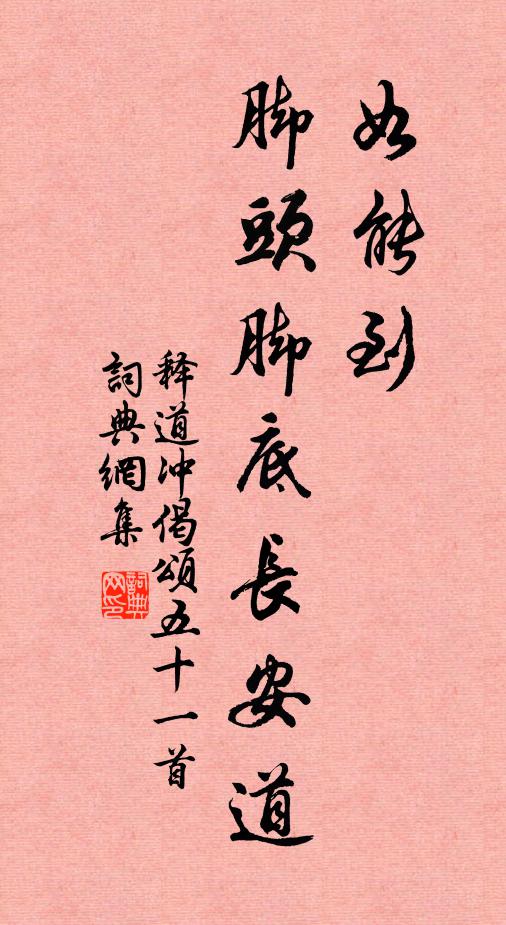 如能到
脚頭脚底長安道
释道冲偈頌五十一首
詞典網集
詞典网印